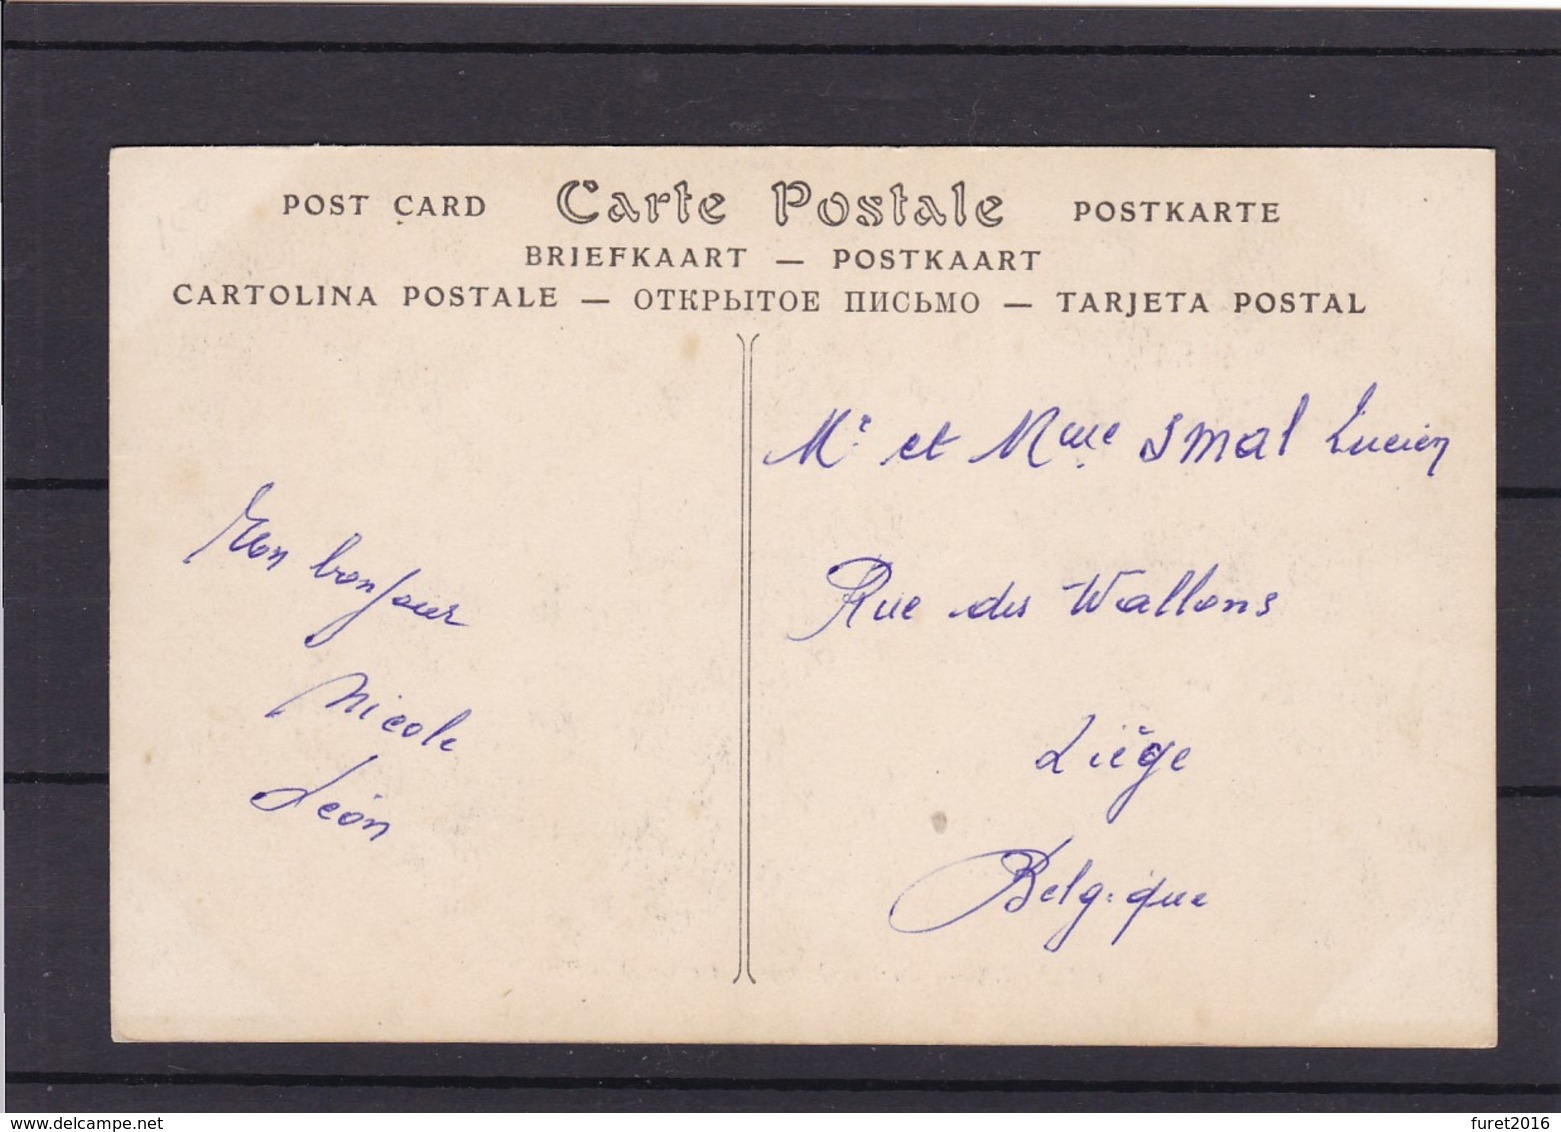 POST CARD Carte Postale POSTKARTE
BRIEFKAART — POSTKAART
CARTOLINA POSTALE — ОТКРЫТОЕ ПИСЬМО — TARJETA POSTAL
Mr et Mme Smal Lucien
Rue des Wallons
Liège
Belgique
Mon bonjour
Nicole
Léon
www.delcampe.net
furet2016